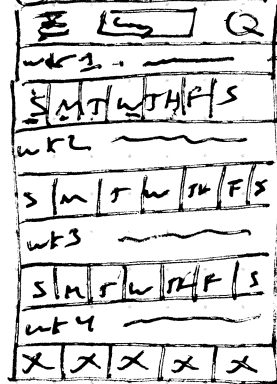 wk 1.
S M T W TH F S
wk 2
S M T W TH F S
wk 3
S M T W TH F S
wk 4
X X X X X